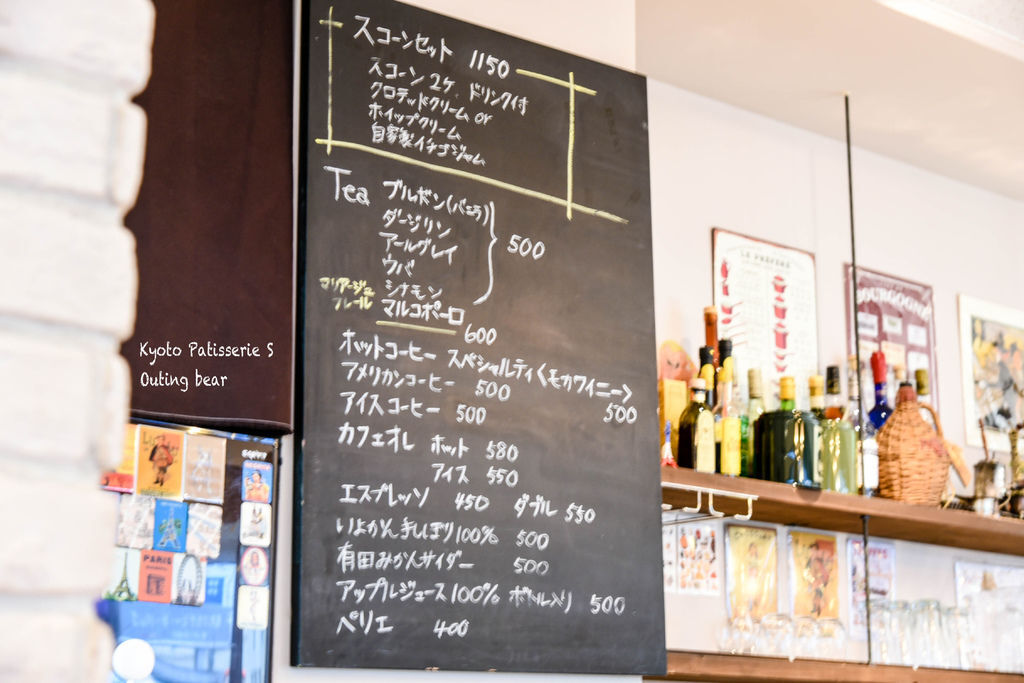 スコーンセット 1150
スコーン2ケ ドリンク付
クロテッドクリーム or
ホイップクリーム
自家製イチゴジャム
Tea ブルボン(バニラ)
ダージリン
アールグレイ
ウバ
シナモン
マルコポーロ
500
マリアージュ
フレール
600
ホットコーヒー スペシャルティ<モカワイニー>
500
アメリカンコーヒー 500
アイスコーヒー 500
カフェオレ ホット 580
アイス 550
エスプレッソ 450 ダブル 550
いよかん手しぼり100% 500
有田みかんサイダー 500
アップルジュース100% ボトル入り 500
ペリエ 400
Kyoto Patisserie S
Outing bear
LE PARFAIT
BOURGOGNE
PARIS